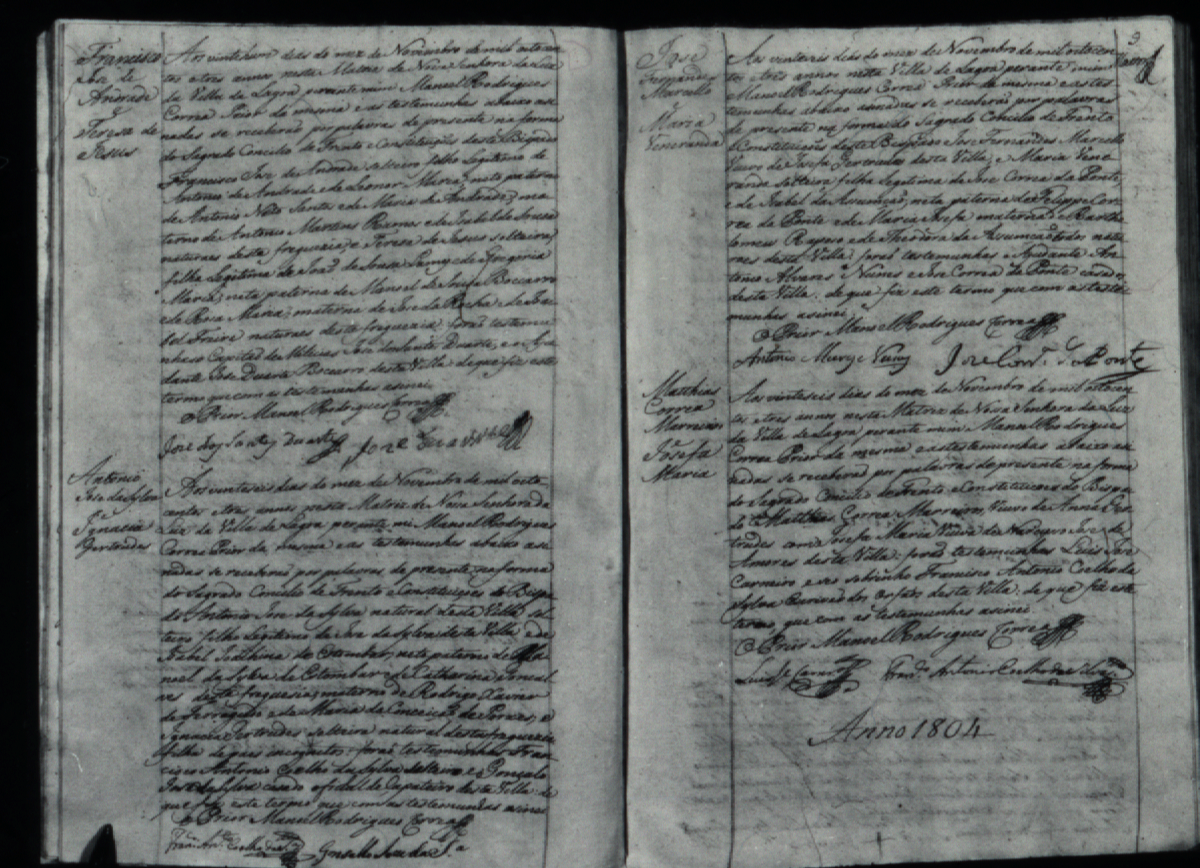 Francisco
Jose de
Andrade
e
Teresa de
Jesus
Aos vintehum dias do mez de Novembro de mil oitocen
tos e tres annos nesta Matriz de Nossa Senhora da Luz
da Villa de Lagoa perante mim Manoel Rodrigues
Correa Prior da mesma e as testemunhas abaixo asi
nadas se receberaõ por palavras de presente na forma
do Sagrado Concilio de Trento e Constituiçoẽs deste Bispado
Francisco Joze de Andrade solteiro filho Legitimo de
Antonio de Andrade e de Leonor Maria; neto paterno
de Antonio Neto Santos e de Maria de Andrade; ma
terno de Antonio Martins Ramos e de Isabel de Sousa
naturaes desta freguezia; e Teresa de Jesus solteira
filha Legitima de Joaõ de Sousa e de Gregoria
Maria; neta paterna de Manoel de Bocarro
e de Rosa Maria; materna de Jose da Rocha e de Isa
bel Freire naturaes desta freguezia: foraõ testemu
nhas o Capitaõ de Milicias Jose dos Santos Duarte, e o Aju
dante Jose Duarte Bocarro desta Villa de que fiz este
termo que com as testemunhas asinei
O Prior Manoel Rodrigues Correa
Jose dos Santos Duarte
Antonio
Jose da Sylva
e
Ignacia
Gertrudes
Aos vinteseis dias do mez de Novembro de mil oito
centos e tres annos nesta Matriz de Nossa Senhora da
Luz da Villa de Lagoa perante mi Manoel Rodrigues
Correa Prior da mesma e as testemunhas abaixo asi
nadas se receberaõ por palavras de presente na forma
do Sagrado Concilio de Trento e Constituiçoẽs do Bispa
do Antonio Jose da Sylva natural desta Villa sol
teiro filho Legitimo de Jose da Sylva desta Villa e de
Isabel Joaquina de Estombar, neto paterno de Ma
noel da Sylva de Estombar e de Catharina Goncal
ves desta freguesia; materno de Rodrigo Xavier
de Ferragudo e de Maria da Conceiçaõ de Porches, e
Ignacia Gertrudes solteira natural desta freguezia
filha de paes incognitos: foraõ testemunhas Fran
cisco Antonio Coelho da Sylva solteiro e Gonçalo
Jose da Sylva casado official de Capateiro desta Villa: de
que fiz este termo que com as testemunhas asinei
O Prior Manoel Rodrigues Correa
Fran.co An.to Coelho da S.a Gonsallo Joze da S.a
9
Jose
Fernandes
Marcello
e
Maria
Veneranda
Aos vinteseis dias do mez de Novembro de mil oitocen
tos e tres annos nesta Villa de Lagoa perante mim
Manoel Rodrigues Correa Prior da mesma e as tes
temunhas abaixo asinadas se receberaõ por palavras
de presente na forma do Sagrado Concilio de Trento
e Constituiçoẽs deste Bispado Jose Fernandes Marcello
Viuvo de Josefa Gertrudes desta Villa, e Maria Vene
randa solteira filha Legitima de Jose Correa da Ponte,
e de Isabel da Assumçaõ; neta paterna de Felippe Cor
rea de Ponte e de Maria Josefa materna de Bartho
lomeu Raposo e de Theodora da Assumçaõ todos natu
raes desta Villa; foraõ testemunhas o Ajudante An
tonio Alvares Nunes e Jose Correa da Ponte casados
desta Villa. de que fiz este termo que com as teste
munhas asinei
O Prior Manoel Rodrigues Correa
Jose Cor.a da Ponte
Matthias
Correa
Marreiros
e
Josefa
Maria
Aos vinteseis dias do mez de Novembro de mil oitocen
tos e tres annos nesta Matriz de Nossa Senhora da Luz
da Villa de Lagoa perante mim Manoel Rodrigues
Correa Prior da mesma e as testemunhas abaixo asi
nadas se receberaõ por palavras de presente na forma
do Sagrado Concilio de Trento e Constituiçoẽs do Bispa
do Matthias Correa Marreiros Viuvo de Anna Ger
trudes com Josefa Maria Viuva de Jose de
Amores desta Villa: foraõ testemunhas Luis Jose
Carneiro e seo sobrinho Francisco Antonio Coelho da
Sylva Escrivaõ dos orfaõs desta Villa: de que fiz este
termo, que com as testemunhas asinei.
O Prior Manoel Rodrigues Correa
Fran.co Antonio Coelho da Silva
Anno 1804